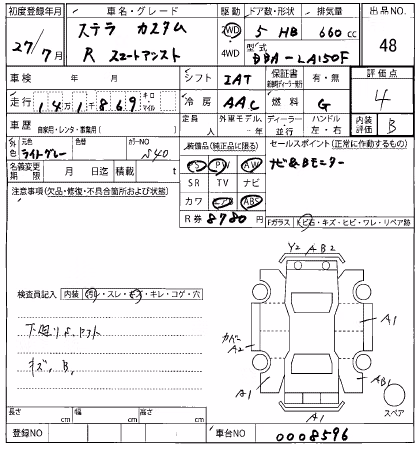 初度登録年月 車名・グレード 駆動 ドア数・形状 排気量 出品NO.
27/7月 ステラ カスタム 2WD・4WD 5 HB 660cc 48
R スマートアシスト 型式 DBA-LA150F
車検 年 月 シフト IAT 保証書 有・無 評価点
走行 14万1千869 キロ・マイル 冷房 AAC 燃料 G 4
車歴 自家用・レンタ・事業用( ) 定員 人 外車モデル 年 ディーラー・並行 ハンドル 左・右 内装評価 B
外色 元色 ライトグレー 色替 カラーNO S40 装備品(純正品に限る) セールスポイント(正常に作動するもの)
名義変更期限 月 日迄 積載 t PS PW AW ナビ&Bモニター
注意事項(欠品・修復・不具合箇所および状態) SR TV ナビ
カワ エアB ABS
R券 8780円 Fガラス キズ・ヒビ・ワレ・リペア跡
Y2 A B2
検査員記入 内装 汚れ・スレ・キズ・キレ・コゲ・穴
A1
カバー A2
下廻りサビ
キズ、B,
A1 AB1
A1 スペア
長さ cm 幅 cm 高さ cm
登録NO 車台NO 0008596